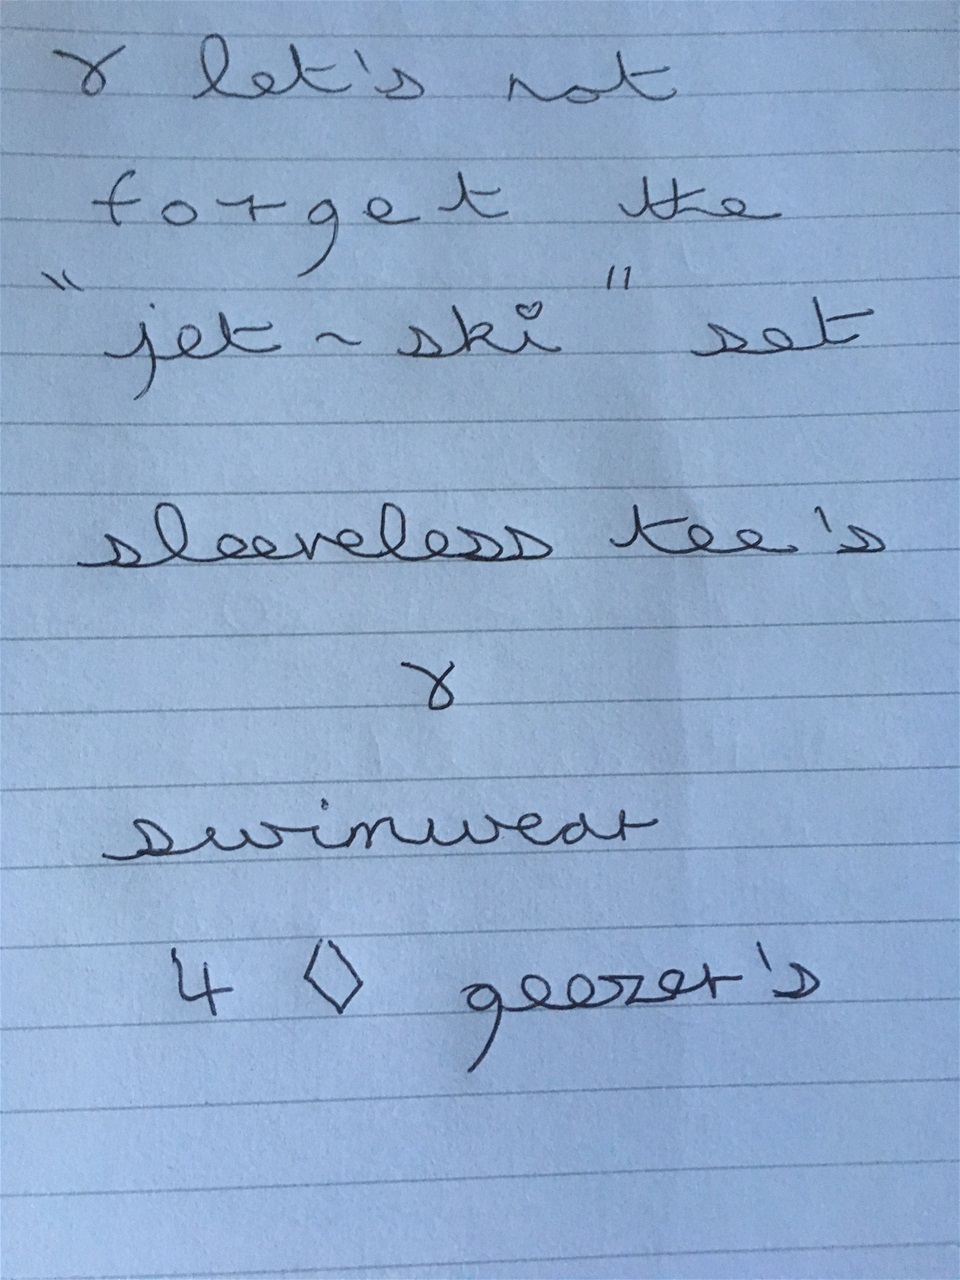 & let's not
forget the
"jet ~ ski" set
sleeveless tee's
&
swimwear
4 ◊ geezer's